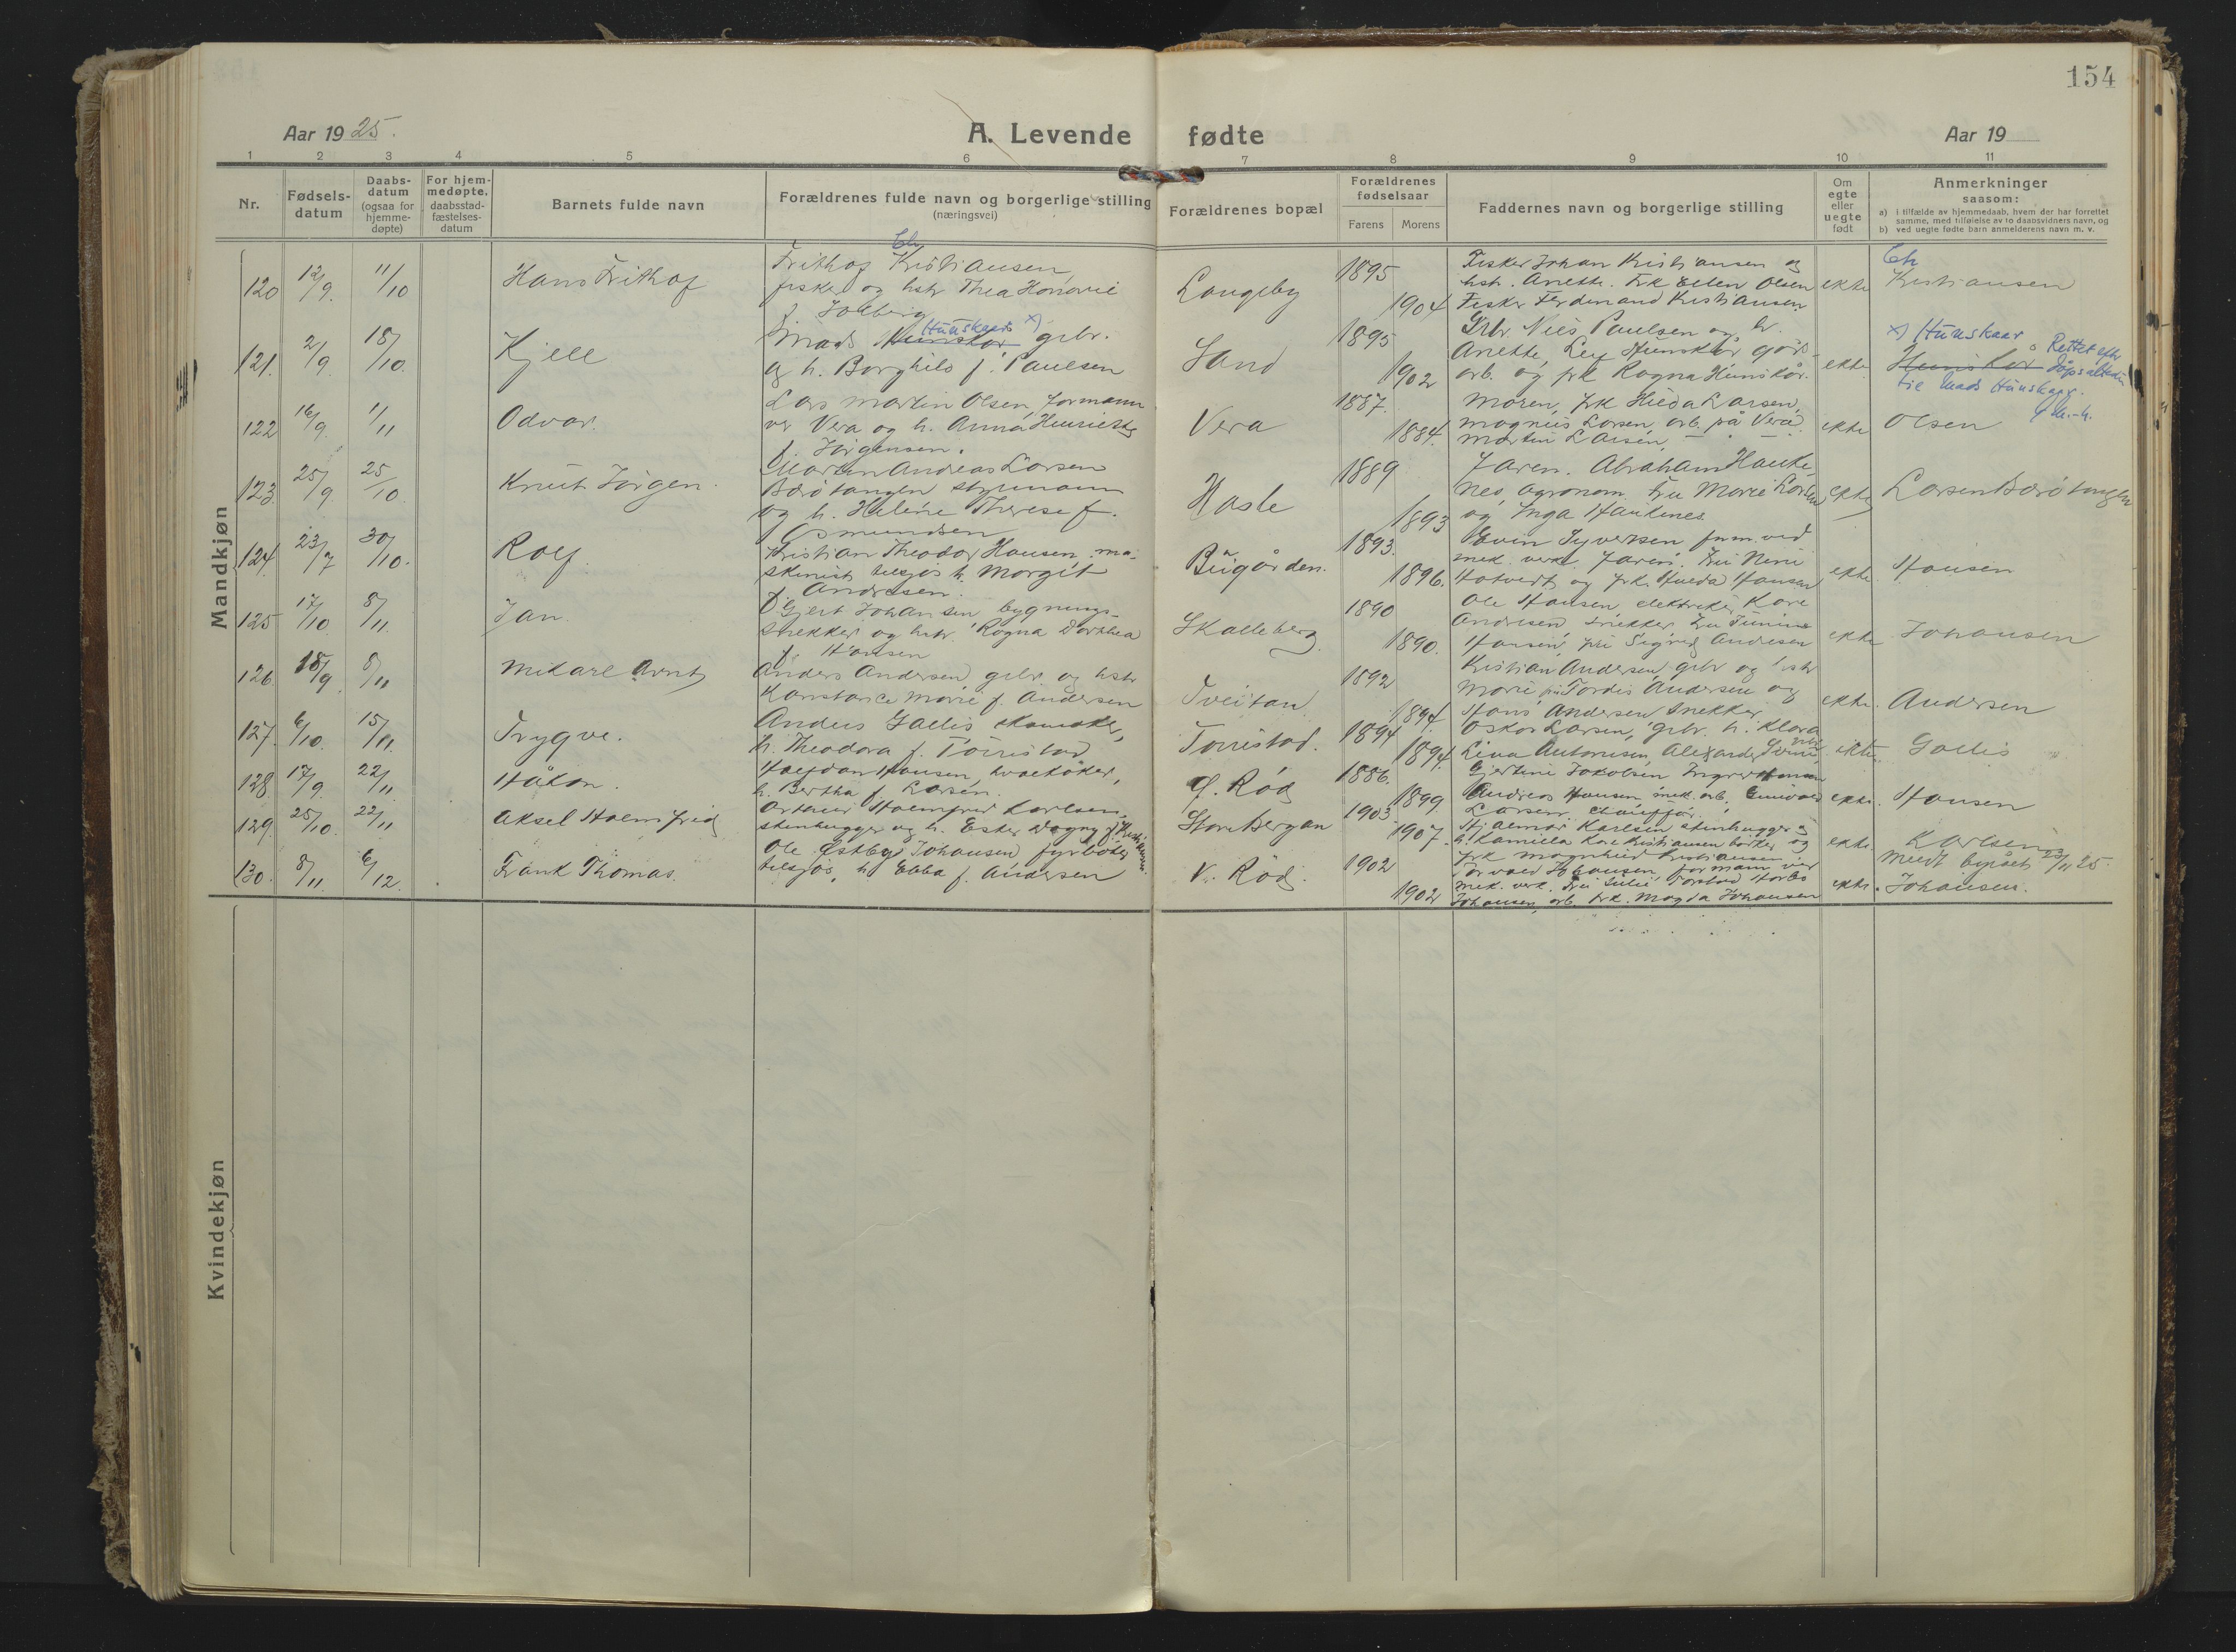 154
Aar 1925.
A. Levende fødte
Aar 19
1 2 3 4 5 6 7 8 9 10 11
Nr.
Fødsels-
datum
Daabs-
datum
(ogsaa for
hjemme-
døpte)
For hjem-
medøpte.
daabsstad-
fæstelses-
datum
Barnets fulde navn
Forældrenes fulde navn og borgerlige stilling
(næringsvei)
Forældrenes bopæl
Forældrenes
fødselsaar
Farens Morens
Faddernes navn og borgerlige stilling
Om
egte
eller
uegte
født
Anmerkninger
saasom:
a) i tilfælde av hjemmedaab, hvem der har forrettet
samme, med tilføielse av to daabsvidners navn, og
b) ved uegte fødte barn anmelderens navn m. v.
Mandkjøn
120 12/9. 11/10 Hans Frithof
Ch
Frithof Kristiansen,
fisker og hstr Thea Honorie
f. Solberg
Langeby
1895
1904
Fisker Johan Kristiansen og
hstr. Anette. Frk Ellen Olsen
Fisker Ferdinand Kristiansen
ekte
Ch
Kristiansen
121. 2/9. 18/10. Kjell
Hunskaar x)
Mads Hunskar gbr.
og h. Borghild f. Paulsen
Sand
1895
1902
Gbr. Nils Paulsen og h.
Anette, Leif Hunskår gårds-
arb. og frk Ragna Hunskår.
ekte
x) Hunskaar
Hunskar Rettet efter
dåpsattesten
til Mads Hunskaar.
122 16/9. 1/11 Odvar.
Lars Martin Olsen, formann
ved Vera og h. Anna Henriette
f. Jörgensen.
Vera
1887.
1884.
Moren, frk Hilda Larsen,
Magnus Larsen, arb. på Vera.
Martin Larsen, — " —
ekte
Olsen
123. 25/9 25/10. Knut Jörgen.
Martin Andreas Larsen
Barötangen styrmann
og h. Helene Therese f.
Osmundsen
Hasle
1889
1893
Faren. Abraham Hauke-
nes, agronom. Fru Marie Larsen
og Inga Haukenes.
ekte
Larsen Barötangen
124. 23/7 30/10. Rolf
Kristian Theodor Hansen, ma-
skinist tilsjös h. Margit
f. Andresen.
Bugården.
1893.
1896.
Evin Syversen form. ved
mek. verk. Faren. Fru Nini
Hotvedt og frk. Hulda Hansen
ekte
Hansen
125 17/10 8/11. Jan.
Gjert Johansen bygnings-
snekker og hstr. Ragna Dorthea
f. Hansen
Skalleberg.
1890
1890.
Ole Hansen, elektriker, Kåre
Andresen snekker Fru
Hansen, fru Sigrid Andresen
ekte
Johansen
126. 18/9. 8/11 Mikael Arnt
Anders Andersen gbr. og hstr
Konstance Marie f. Andersen
Tveitan
1892
1894.
Kristian Andersen, gbr og hstr
Marie frk Tordis Andersen og
Hans Andersen snekker
ekte.
Andersen
127. 6/10. 15/11. Trygve.
Anders Gallis skomaker,
h. Theodora f. Torrestad
Torrestad.
1894
1894.
Oskar Larsen, gbr. h. Klara
Lina Antonsen, Aleksander
ekte.
Gallis
128. 17/9. 22/11. Håkon.
Halfdan Hansen, hvalkoker,
h. Bertha f. Larsen.
Ø. Röd
1886.
1899
Gjertine Jakobsen Ingv. Hansen
Andreas Hansen mek. arb.
Larsen, chauffør.
ekte.
Hansen
129. 25/10. 22/11 Aksel Holmfrid
Holmfrid Karlsen
stenhugger og h. Ester Dagny f. Kristiansen.
Store Bergan
1903
1907.
Hjalmar Karlsen stenhugger og
h. Kamilla Kåre Kristiansen og
frk Magnhild Kristiansen
ekte
Karlsen
Meldt 25/11 25.
130. 8/11. 6/12. Frank Thomas.
Ole Østby Johansen fyrböter
tilsjös, h. Ebba f. Andersen
V. Röd.
1902
1902
Torvald Johansen, formann ved
mek. verk. Fru Julie,
Johansen, arb. frk. Magda Johansen
ekte.
Johansen.
Kvindekjøn